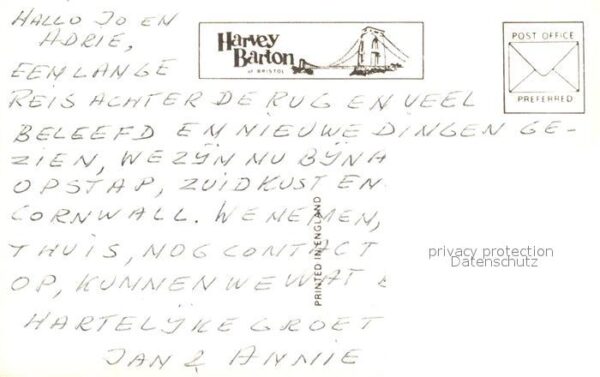 HALLO JO EN
ADRIE,
EEN LANGE
REIS ACHTER DE RUG EN VEEL
BELEEFD EN NIEUWE DINGEN GE-
ZIEN, WE ZIJN NU BIJNA
OPSTAP, ZUIDKUST EN
CORNWALL. WE NEMEN,
THUIS, NOG CONTACT
OP, KUNNEN WE WAT
HARTELIJKE GROET
JAN & ANNIE
Harvey
Barton
of BRISTOL
POST OFFICE
PREFERRED
PRINTED IN ENGLAND
privacy protection
Datenschutz